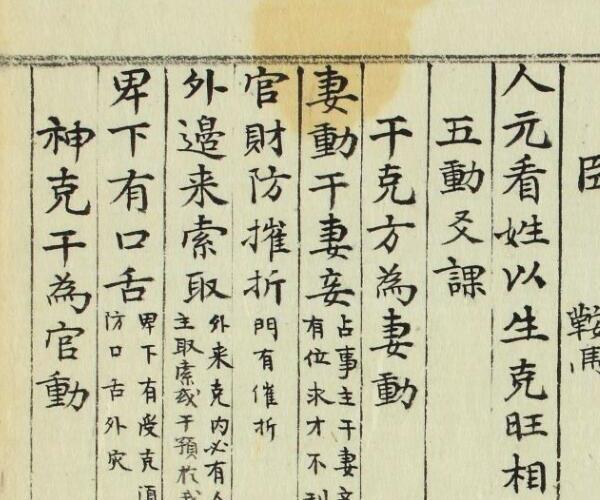 臣
鞍馬
人元看姓以生克旺相
五動爻課
干克方為妻動
妻動干妻妾
占事主干妻妾
有位求才不利
官財防摧折
門有催折
外邊来索取
外来克内必有人
主取索或干預於我
卑下有口舌
卑下有受克須
防口舌外灾
神克干為官動